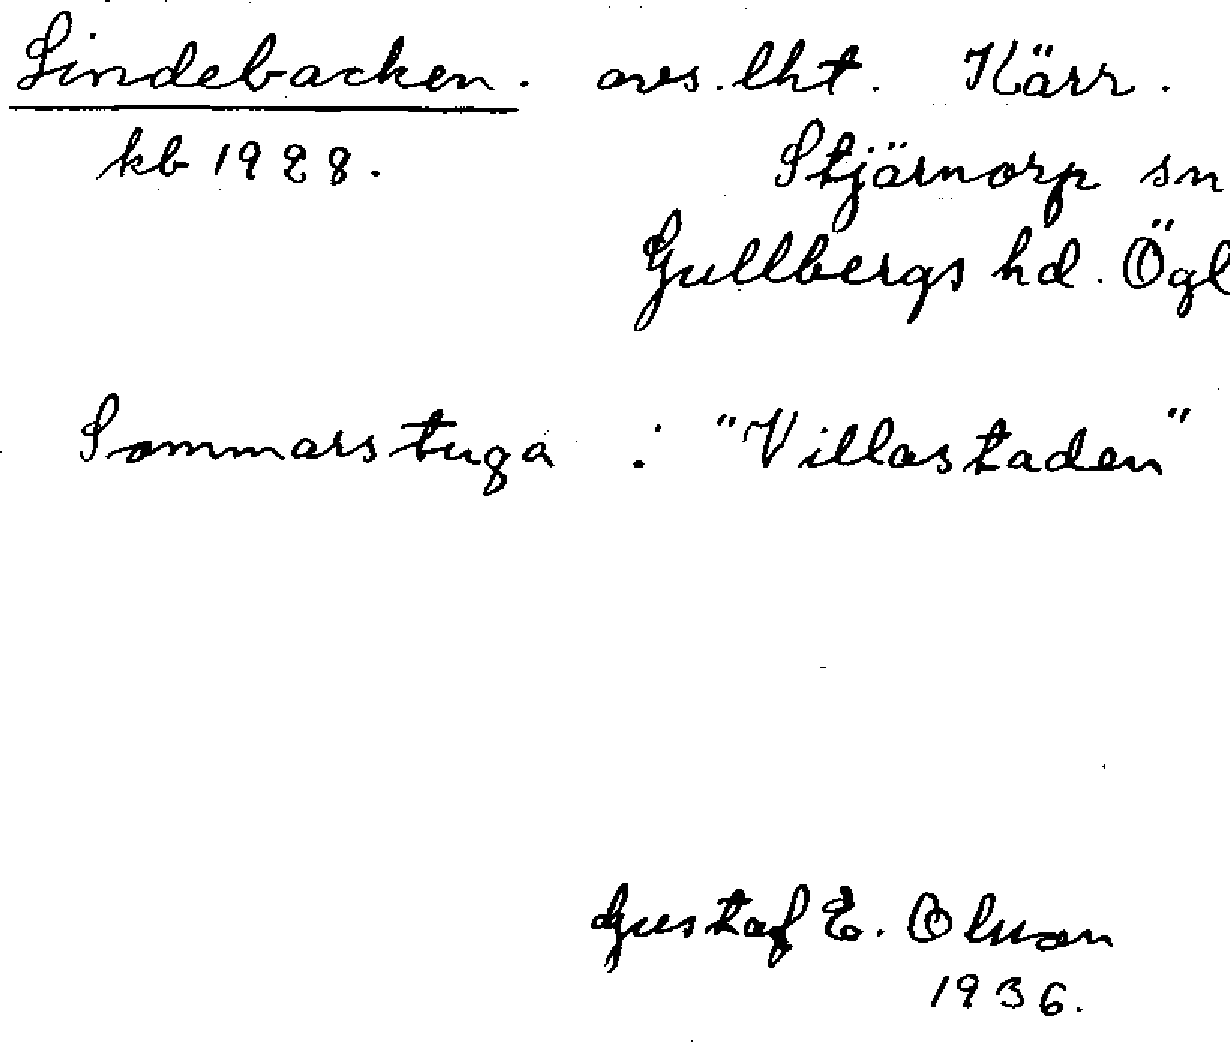 Lindebacken. avs. lht. Kärr.
kb 1928.
Stjärnorp sn
Gullbergs hd. Ögl
Sommarstuga : "Villastaden"
Gustaf E. Olsson
1936.